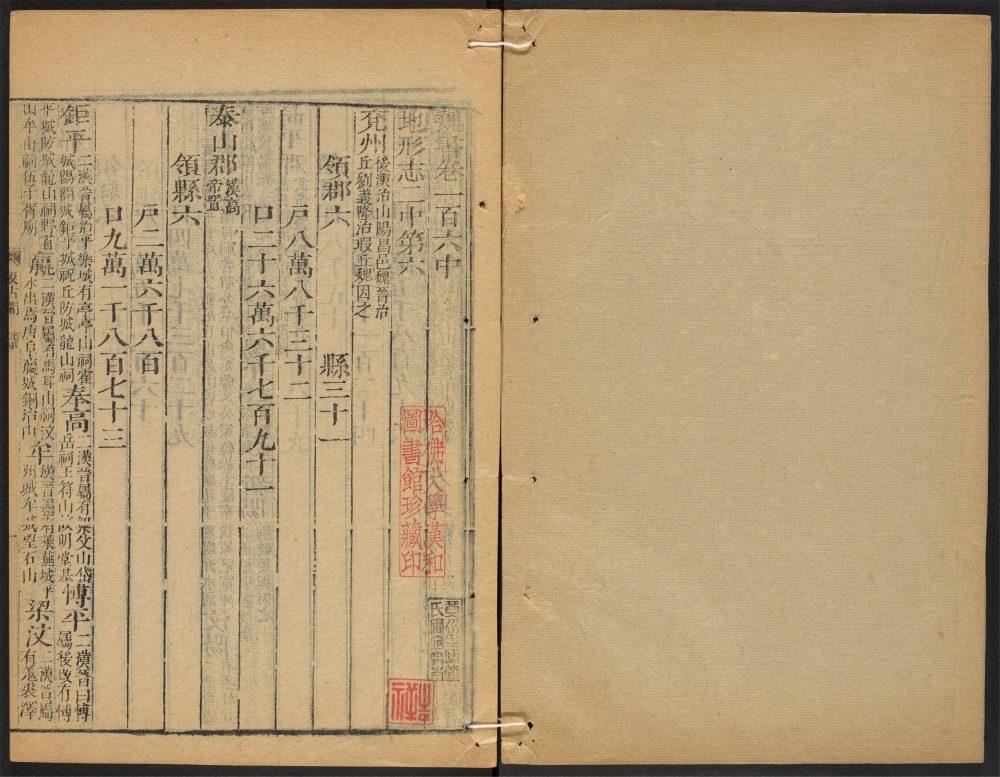 魏書卷一百六中
地形志二中第六
兗州後漢治山陽昌邑魏晉治
丘劉義隆治瑕丘魏因之
領郡六 縣三十一
戶八萬八千三十二
口二十六萬六千七百九十一
泰山郡漢高
帝置
領縣六
戶二萬六千八百
口九萬一千八百七十三
鉅平二漢晉屬治平樂城有亭亭山祠
城陽關城鉅平城祝丘防城龍山祠
奉高二漢晉屬有梁父山岱
岳祠王符山明堂基
博平二漢晉曰博
屬後改有博
平城防城龍山祠
二漢晉屬有馬耳山祠汶
水出焉
牟二漢晉屬有萊蕪城平
州城牟城望石山
梁汶二漢晉屬
有菟裘澤
汲古閣
哈佛大學漢和
圖書館珍藏印